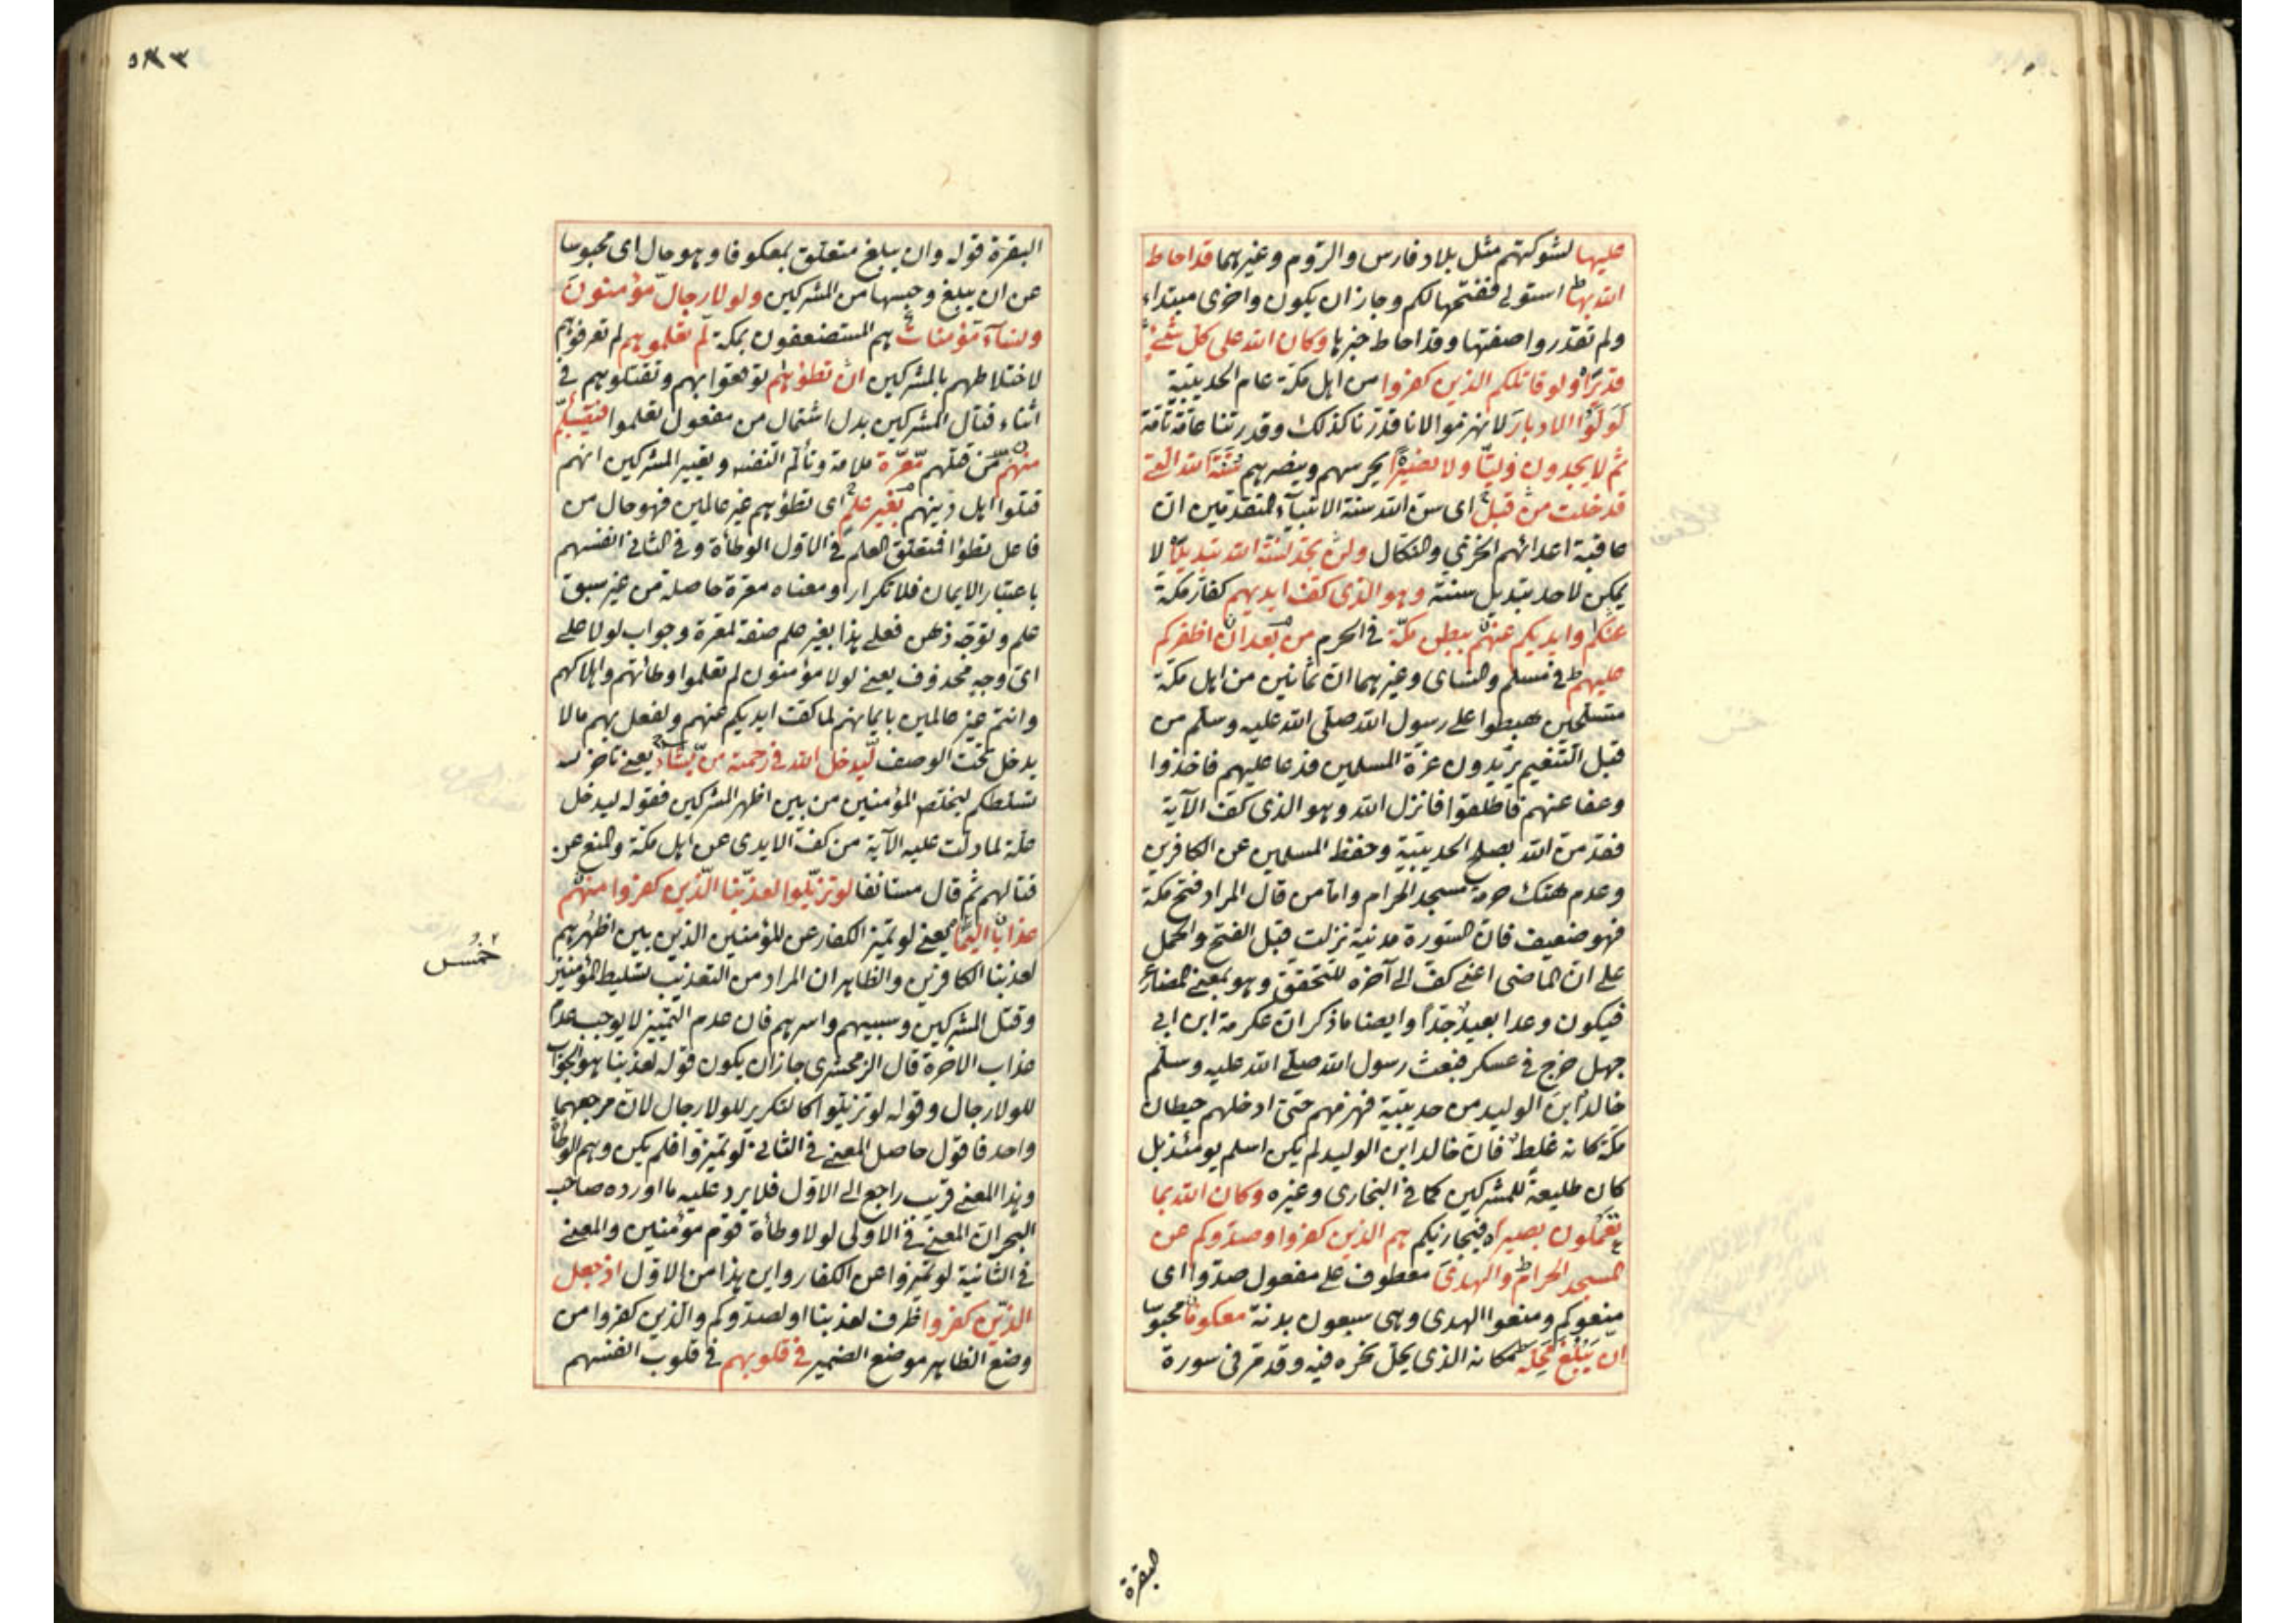 عليها لشوكتهم مثل بلاد فارس والروم وغيرهما قد احاط
الله بها ط استولى ففتحها لكم وجاز ان يكون واخرى مبتداء
ولم تقدروا صفتها وقد احاط خبرها وكان الله على كل شئ
قديرا ولو قاتلكم الذين كفروا من اهل مكة عام الحديبية
لولوا الادبار لانهزموا لانا قدرنا كذلك وقدرتنا عامة تامة
ثم لا يجدون وليا ولا نصيرا يحرسهم وينصرهم سنة الله التى
قد خلت من قبل اى سن الله سنة الانبياء المتقدمين ان
عاقبة اعدائهم الخزي والنكال ولن تجد لسنة الله تبديلا لا
يمكن لاحد تبديل سنته وهو الذى كف ايديهم كفار مكة
عنكم وايديكم عنهم ببطن مكة فى الحرم من بعد ان اظفركم
عليهم ط فى مسلم والنساى وغيرهما ان ثمانين من اهل مكة
متسلحين هبطوا على رسول الله صلى الله عليه وسلم من
قبل التنعيم يريدون غرة المسلمين فدعا عليهم فاخذوا
وعفا عنهم فاطلقوا فانزل الله وهو الذى كف الآية
فقد من الله بصلح الحديبية وحفظ المسلمين عن الكافرين
وعدم هتك حرمة مسجد الحرام واما من قال المراد فتح مكة
فهو ضعيف فان السورة مدنية نزلت قبل الفتح والحمل
على ان الماضى اعنى كف الى آخره للتحقق وهو بمعنى المضارع
فيكون وعدا بعيد جدا وايضا ما ذكر ان عكرمة ابن ابى
جهل خرج فى عسكر فبعث رسول الله صلى الله عليه وسلم
خالد ابن الوليد من حديبية فهزمهم حتى ادخلهم حيطان
مكة كانه غلط فان خالد ابن الوليد لم يكن اسلم يومئذ بل
كان طليعة للمشركين كما فى البخارى وغيره وكان الله بما
تعملون بصيرا فيجازيكم هم الذين كفروا وصدوكم عن
المسجد الحرام والهدى معطوف على مفعول صدوا اى
منعوكم ومنعوا الهدى وهى سبعون بدنة معكوفا محبوسا
ان يبلغ محله ط مكانه الذى يحل نحره فيه وقد مر فى سورة
البقرة
٥٨٣
البقرة قوله وان يبلغ متعلق بمعكوفا وهو حال اى محبوسا
عن ان يبلغ وحبسها من المشركين ولولا رجال مؤمنون
ونساء مؤمنات هم المستضعفون بمكة لم تعلموهم لم تعرفوهم
لاختلاطهم بالمشركين ان تطؤهم توقعوا بهم وتقتلوهم فى
اثناء قتال المشركين بدل اشتمال من مفعول تعلموا فتصيبكم
منهم من قتلهم معرة ملامة وتألم النفس وتعيير المشركين انهم
قتلوا اهل دينهم بغير علم اى تطؤهم غير عالمين فهو حال من
فاعل تطؤا فمتعلق العلم فى الاول الوطأة وفى الثانى انفسهم
باعتبار الايمان فلا تكرار او معناه معرة حاصلة من غير سبق
علم وتوجه ذهن فعلى هذا بغير علم صفة لمعرة وجواب لولا على
اى وجه محذوف يعنى لولا مؤمنون لم تعلموا وطأتهم واهلاكهم
وانتم غير عالمين بايمانهم لما كف ايديكم عنهم ولفعل بهم ما لا
يدخل تحت الوصف ليدخل الله فى رحمته من يشاء يعنى تأخر
تسلطكم ليخلص المؤمنين من بين اظهر المشركين فقوله ليدخل
علة لما دلت عليه الآية من كف الايدى عن اهل مكة والمنع عن
قتالهم ثم قال مستانفا لو تزيلوا لعذبنا الذين كفروا منهم
عذابا اليما يعنى لو تميز الكفار عن المؤمنين الذين بين اظهرهم
لعذبنا الكافرين والظاهر ان المراد من التعذيب تسليط المؤمنين
وقتل المشركين وسبيهم واسرهم فان عدم التمييز لا يوجب عدم
عذاب الاخرة قال الزمخشرى جاز ان يكون قوله لعذبنا هو الجواب
للولا رجال وقوله لو تزيلوا كالتكرير للولا رجال لان مرجعهما
واحد فاقول حاصل المعنى فى الثانى لو تميزوا فلم يكن وهم الوطأة
وهذا المعنى قريب راجع الى الاول فلا يرد عليه ما اورده صاحب
البحر ان المعنى فى الاولى لولا وطأة قوم مؤمنين والمعنى
فى الثانية لو تميزوا عن الكفار واين هذا من الاول اذ جعل
الذين كفروا ظرف لعذبنا او لصدوكم والذين كفروا من
وضع الظاهر موضع الضمير فى قلوبهم فى قلوب انفسهم
خمس